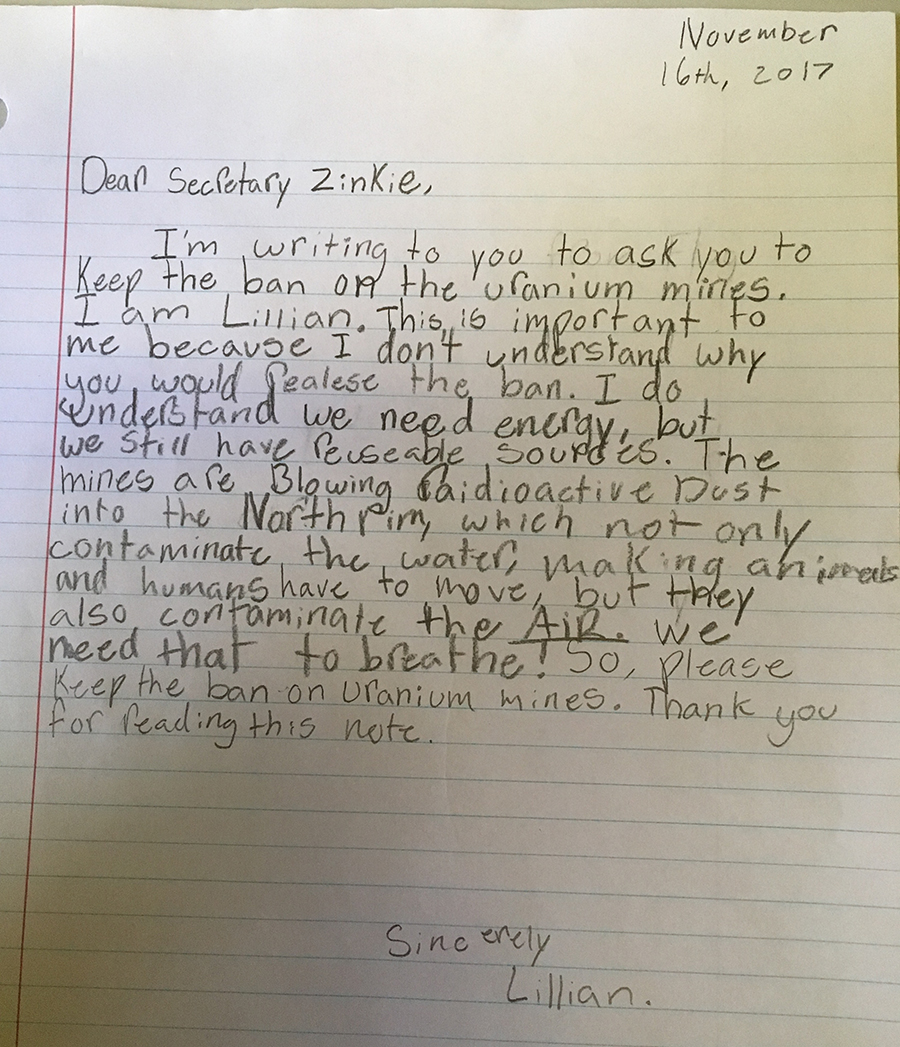 November
16th, 2017
Dear Secretary Zinkie,
I'm writing to you to ask you to
Keep the ban on the uranium mines.
I am Lillian. This is important to
me because I don't understand why
you would realese the ban. I do
understand we need energy, but
we still have reuseable sources. The
mines are Blowing Raidioactive Dust
into the North rim, which not only
contaminate the water, making animals
and humans have to move, but they
also contaminate the AiR. we
need that to breathe! So, please
Keep the ban on uranium mines. Thank you
for reading this note.
Sincerely
Lillian.